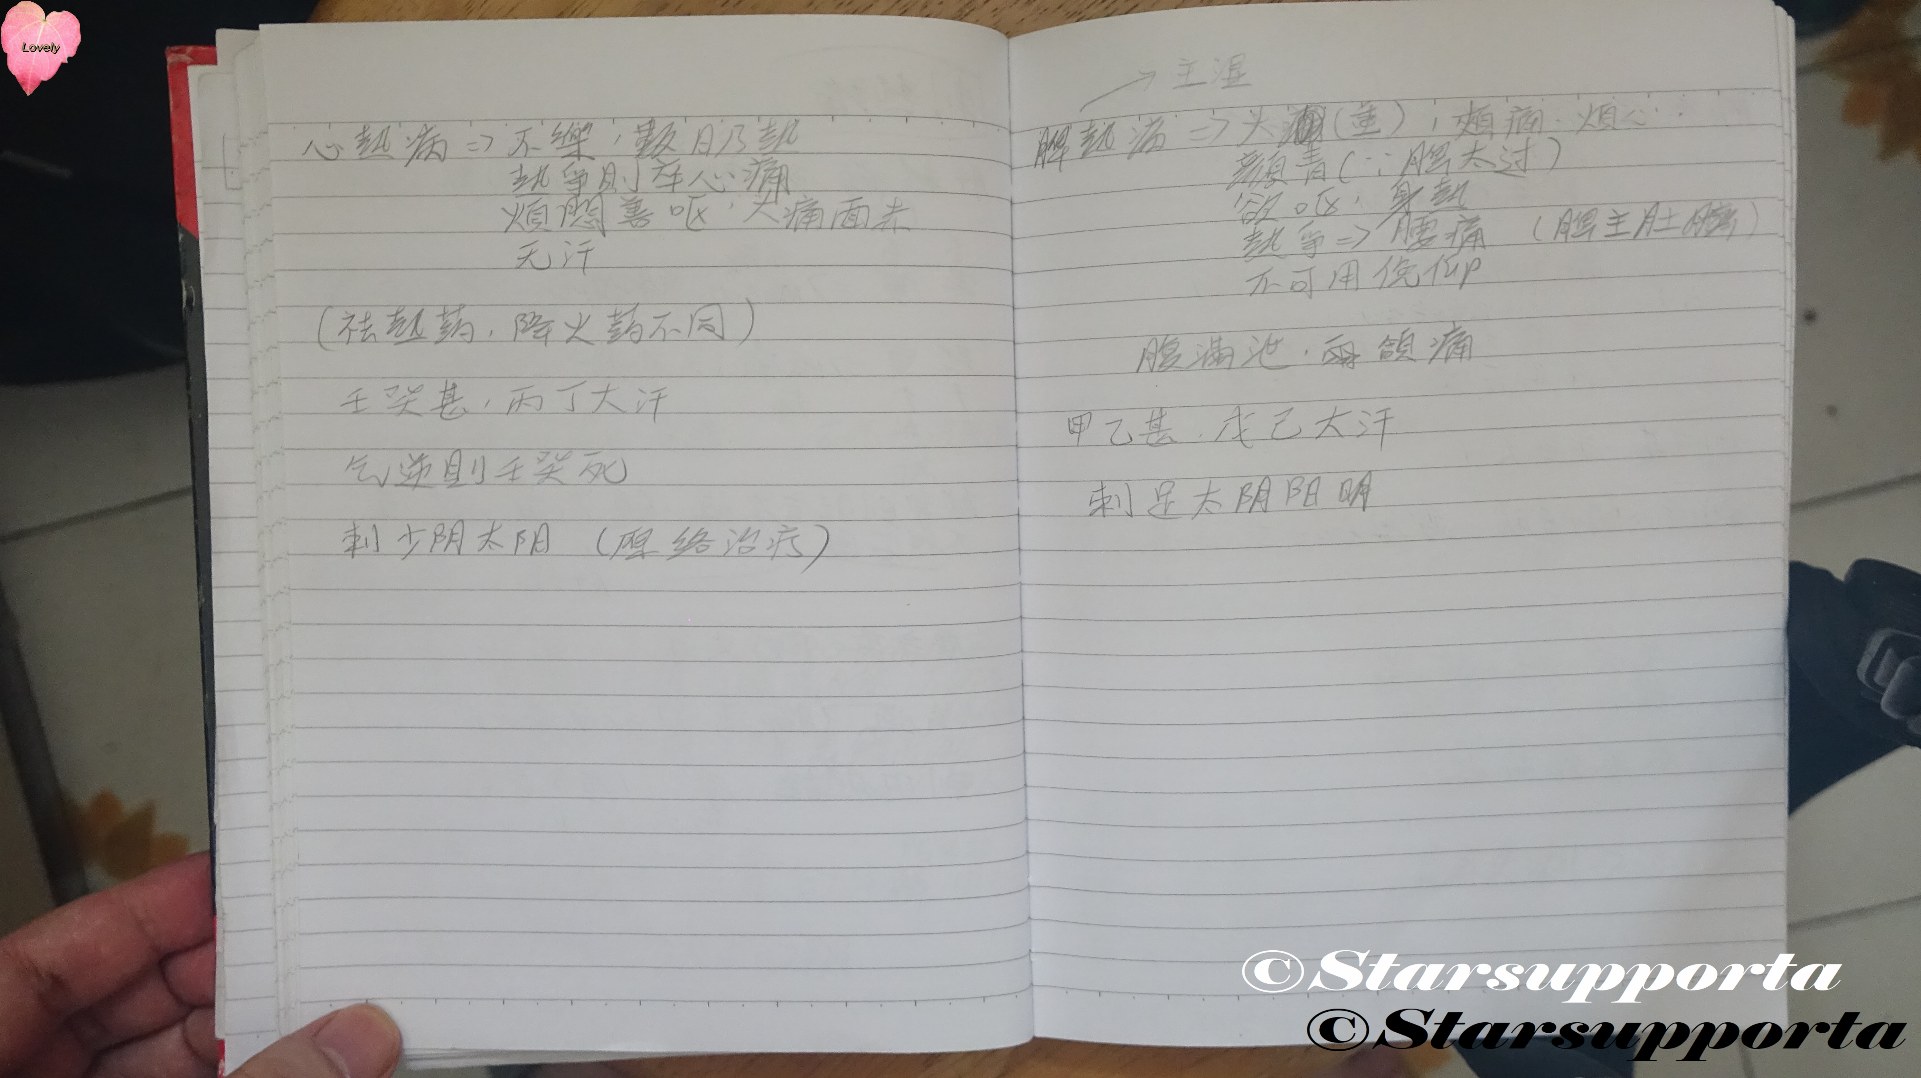 Lovely
心熱病 => 不樂，數日乃熱
熱爭則卒心痛
煩悶善呕，头痛面赤
无汗
(祛熱药，降火药不同)
壬癸甚，丙丁大汗
气逆則壬癸死
刺少阴太阳 (原络治疗)
→ 主湿
脾熱病 => 头(重)，頰痛．煩心
顏青(∵脾太过)
欲呕，身熱
熱爭=> 腰痛 (脾主肚)
不可用俛仰
腹滿泄．兩頜痛
甲乙甚．戊己大汗
刺足太阴阳明
©Starsupporta
©Starsupporta